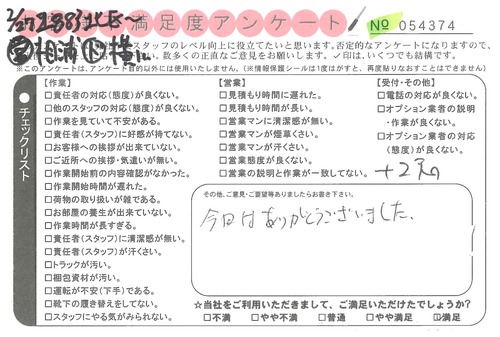 満足度アンケート No 054374
スタッフのレベル向上に役立てたいと思います。否定的なアンケートになりますので、
数多くの正直なご意見をお願いします。✓印は、いくつでも結構です。
※このアンケートは、アンケート目的以外には使用いたしません。(※情報保護シールは1度はがすと、再度貼りなおすことはできません)
チェックリスト
【作業】
□責任者の対応(態度)が良くない。
□他のスタッフの対応(態度)が良くない。
□作業を見ていて不安がある。
□責任者(スタッフ)に好感が持てない。
□お客様への挨拶が出来ていない。
□ご近所への挨拶・気遣いが無い。
□作業開始前の内容確認がなかった。
□作業開始時間が遅れた。
□荷物の取り扱いが雑である。
□お部屋の養生が出来ていない。
□作業時間が長すぎる。
□責任者(スタッフ)に清潔感が無い。
□責任者(スタッフ)が汗くさい。
□トラックが汚い。
□梱包資材が汚い。
□運転が不安(下手)である。
□靴下の履き替えをしてない。
□スタッフにやる気がみられない。
【営業】
□見積もり時間に遅れた。
□見積もり時間が長い。
□営業マンに清潔感が無い。
□営業マンが煙草くさい。
□営業マンが汗くさい。
□営業態度が良くない。
□営業の説明と作業が一致してない。
【受付・その他】
□電話の対応が良くない。
□オプション業者の説明
・作業が良くない。
□オプション業者の対応
(態度)が良くない。
その他、ご意見・ご要望等ありましたらお書き下さい。
今日はありがとうございました。
☆当社をご利用いただきまして、ご満足いただけたでしょうか?
□不満 □やや不満 □普通 □やや満足 ☑満足